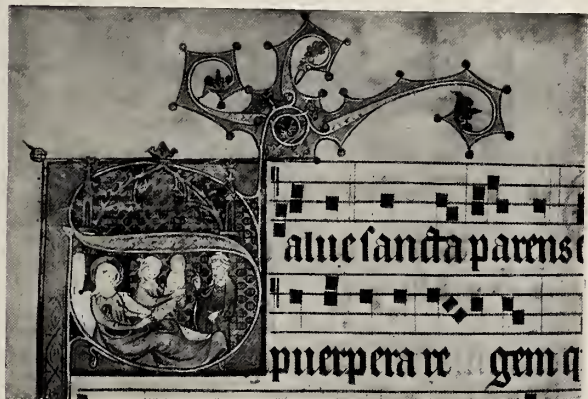 Salue sancta parens
puerpera re gem